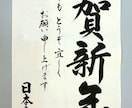 賀新年
もどうぞ宜しく
お願い申し上げます
日本